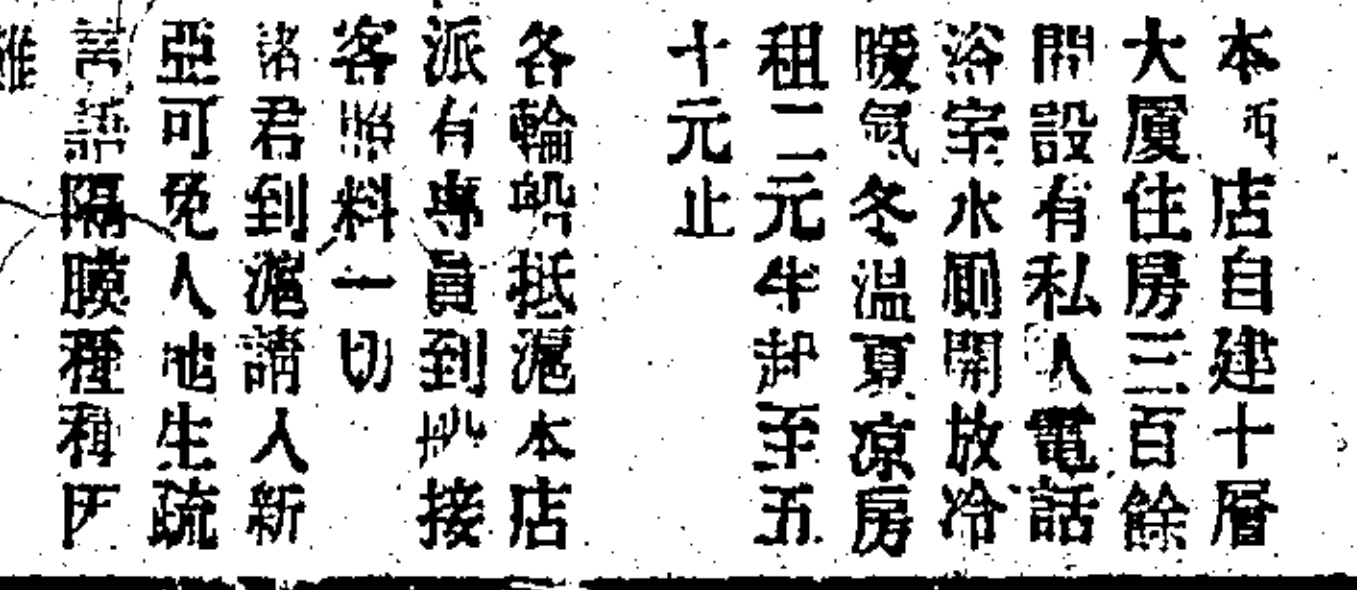 本店自建十層
大廈住房三百餘
間設有私人電話
浴室水廁開放冷
暖氣冬温夏凉房
租二元半起至五
十元止
各輪船抵滬本店
派有專員到埠接
客照料一切
諸君到滬請入新
亞可免人地生疏
言語隔膜種種困
難